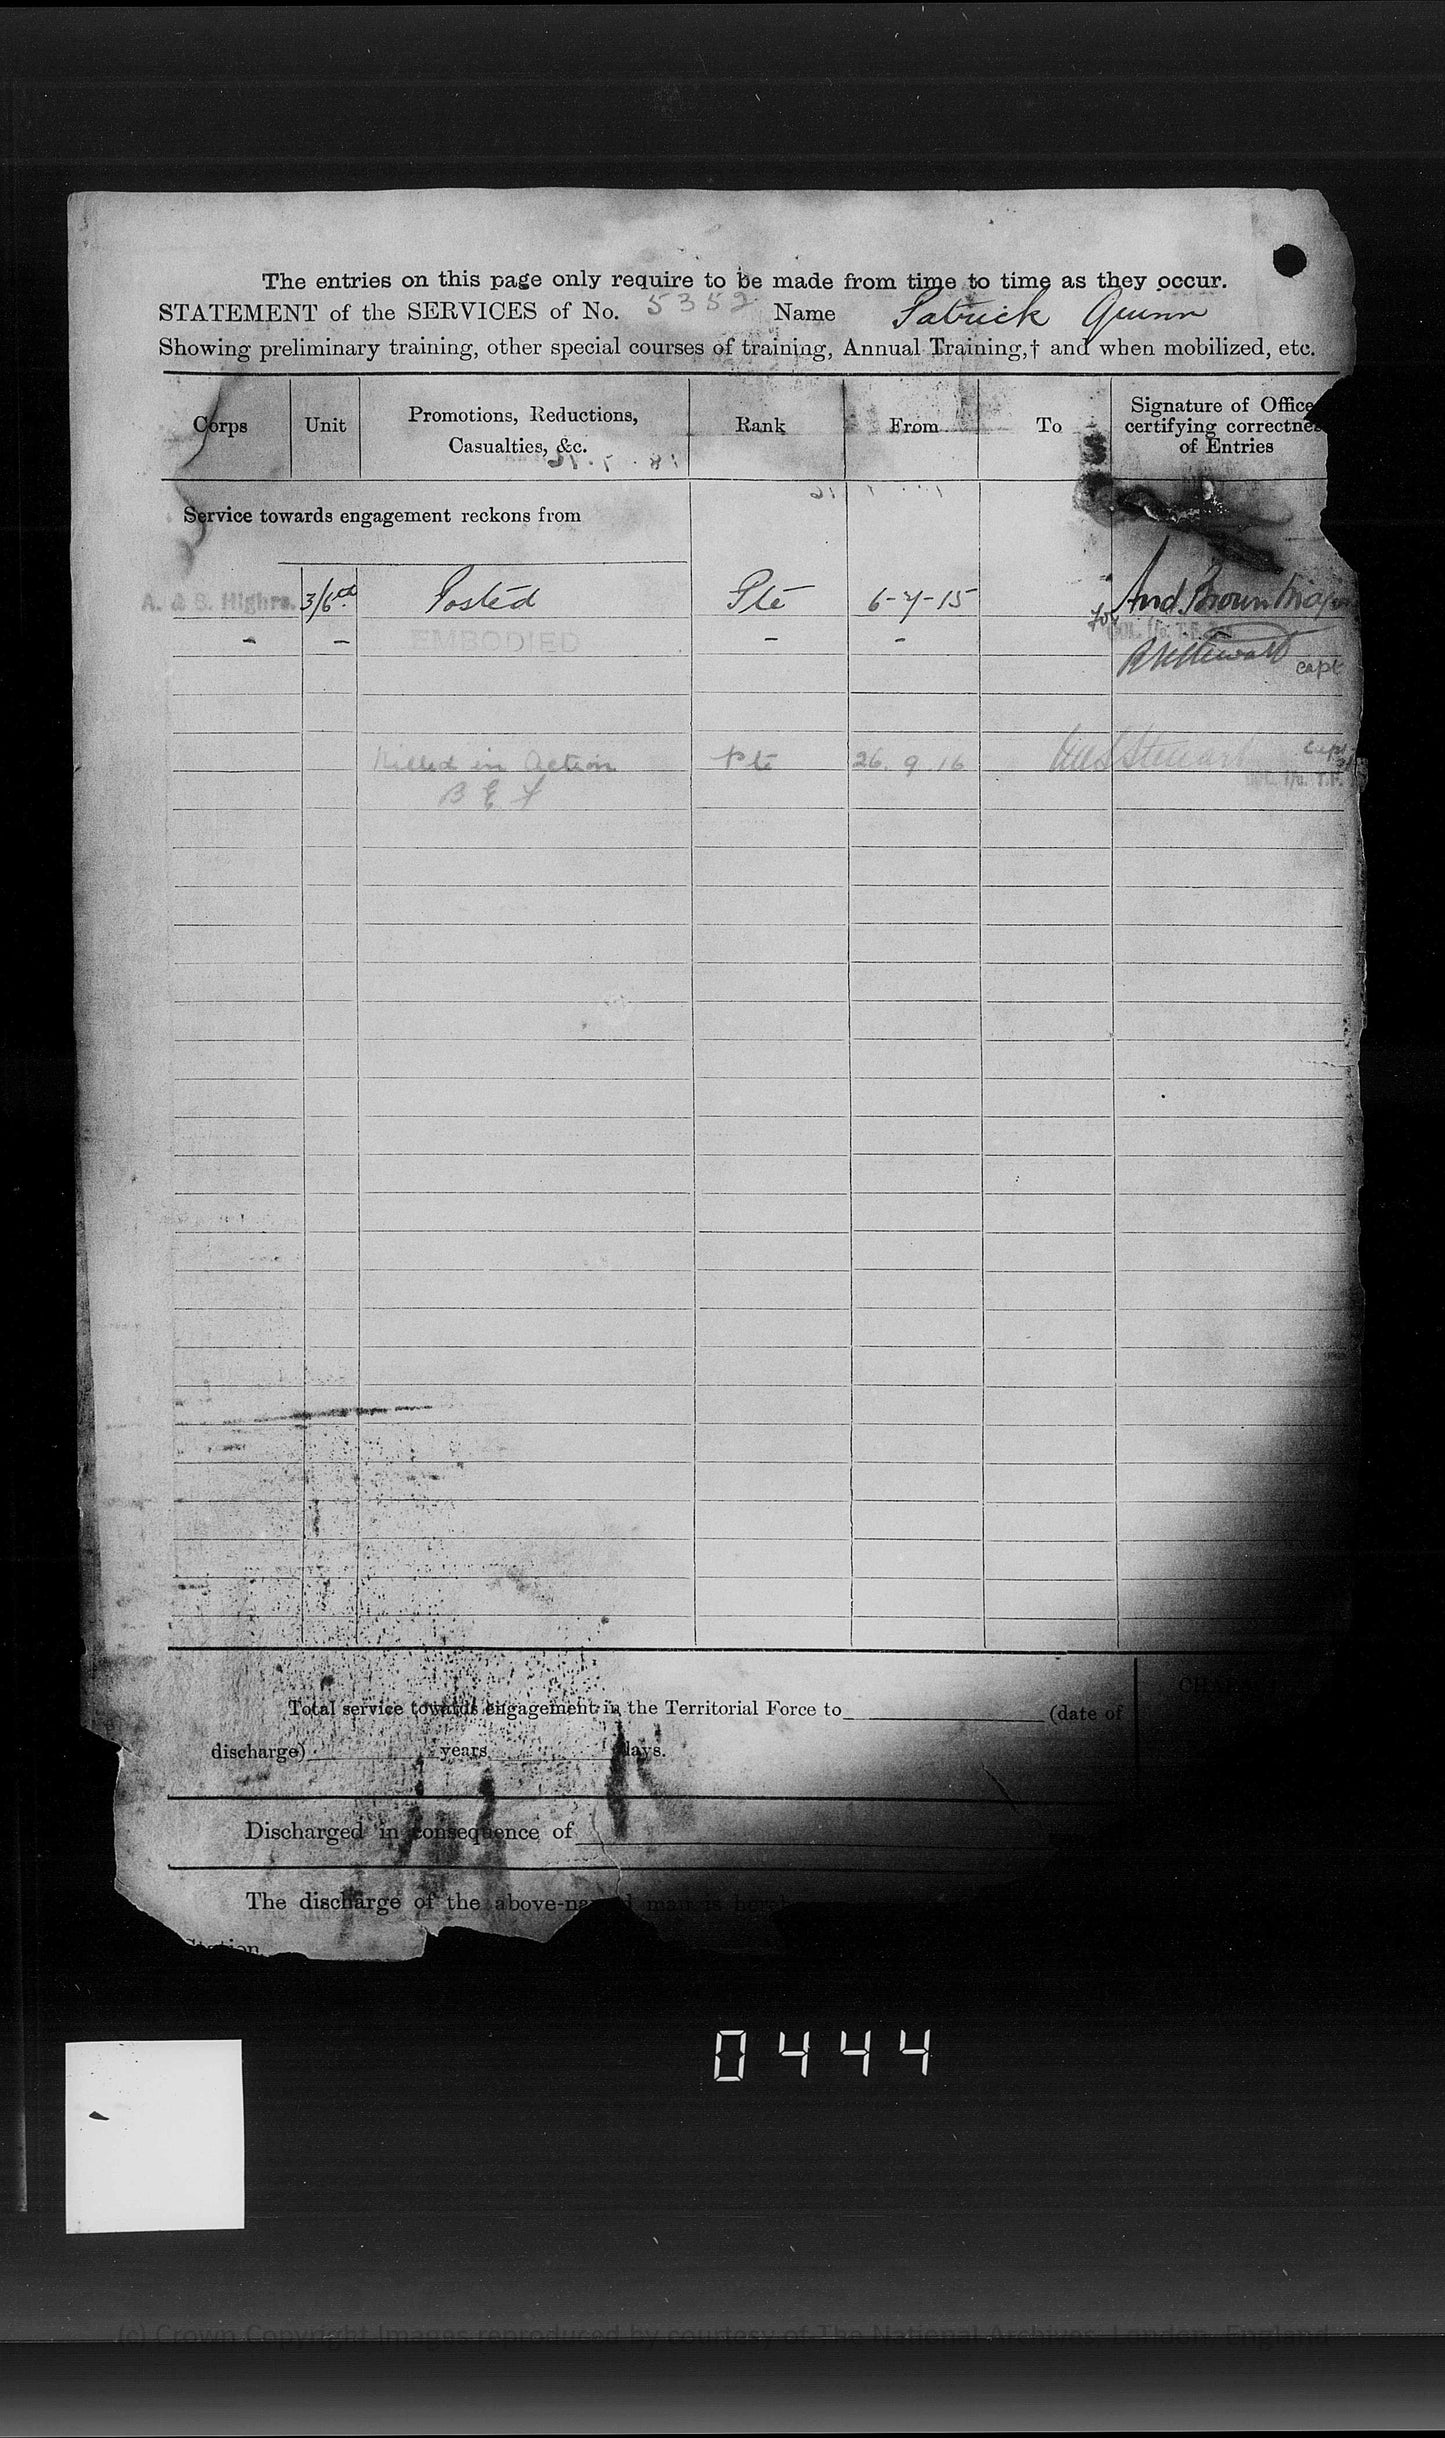 The entries on this page only require to be made from time to time as they occur.
STATEMENT of the SERVICES of No. 5352 Name Patrick Quinn
Showing preliminary training, other special courses of training, Annual Training,† and when mobilized, etc.
Corps Unit Promotions, Reductions, Casualties, &c. Rank From To Signature of Office certifying correctnes of Entries
Service towards engagement reckons from
A. & S. Highrs. 3/6th Posted Pte 6-7-15 And. Brown Major
for COL. I/c. T.F.
- - EMBODIED - - Stewart capt
Killed in Action Pte 26. 9 16 Stewart capt
B E F I/c. T.F.
Total service towards engagement in the Territorial Force to (date of
discharge) years days.
Discharged in consequence of
The discharge of the above-named man is
Station
0444
(c) Crown Copyright Images reproduced by courtesy of The National Archives, London, England